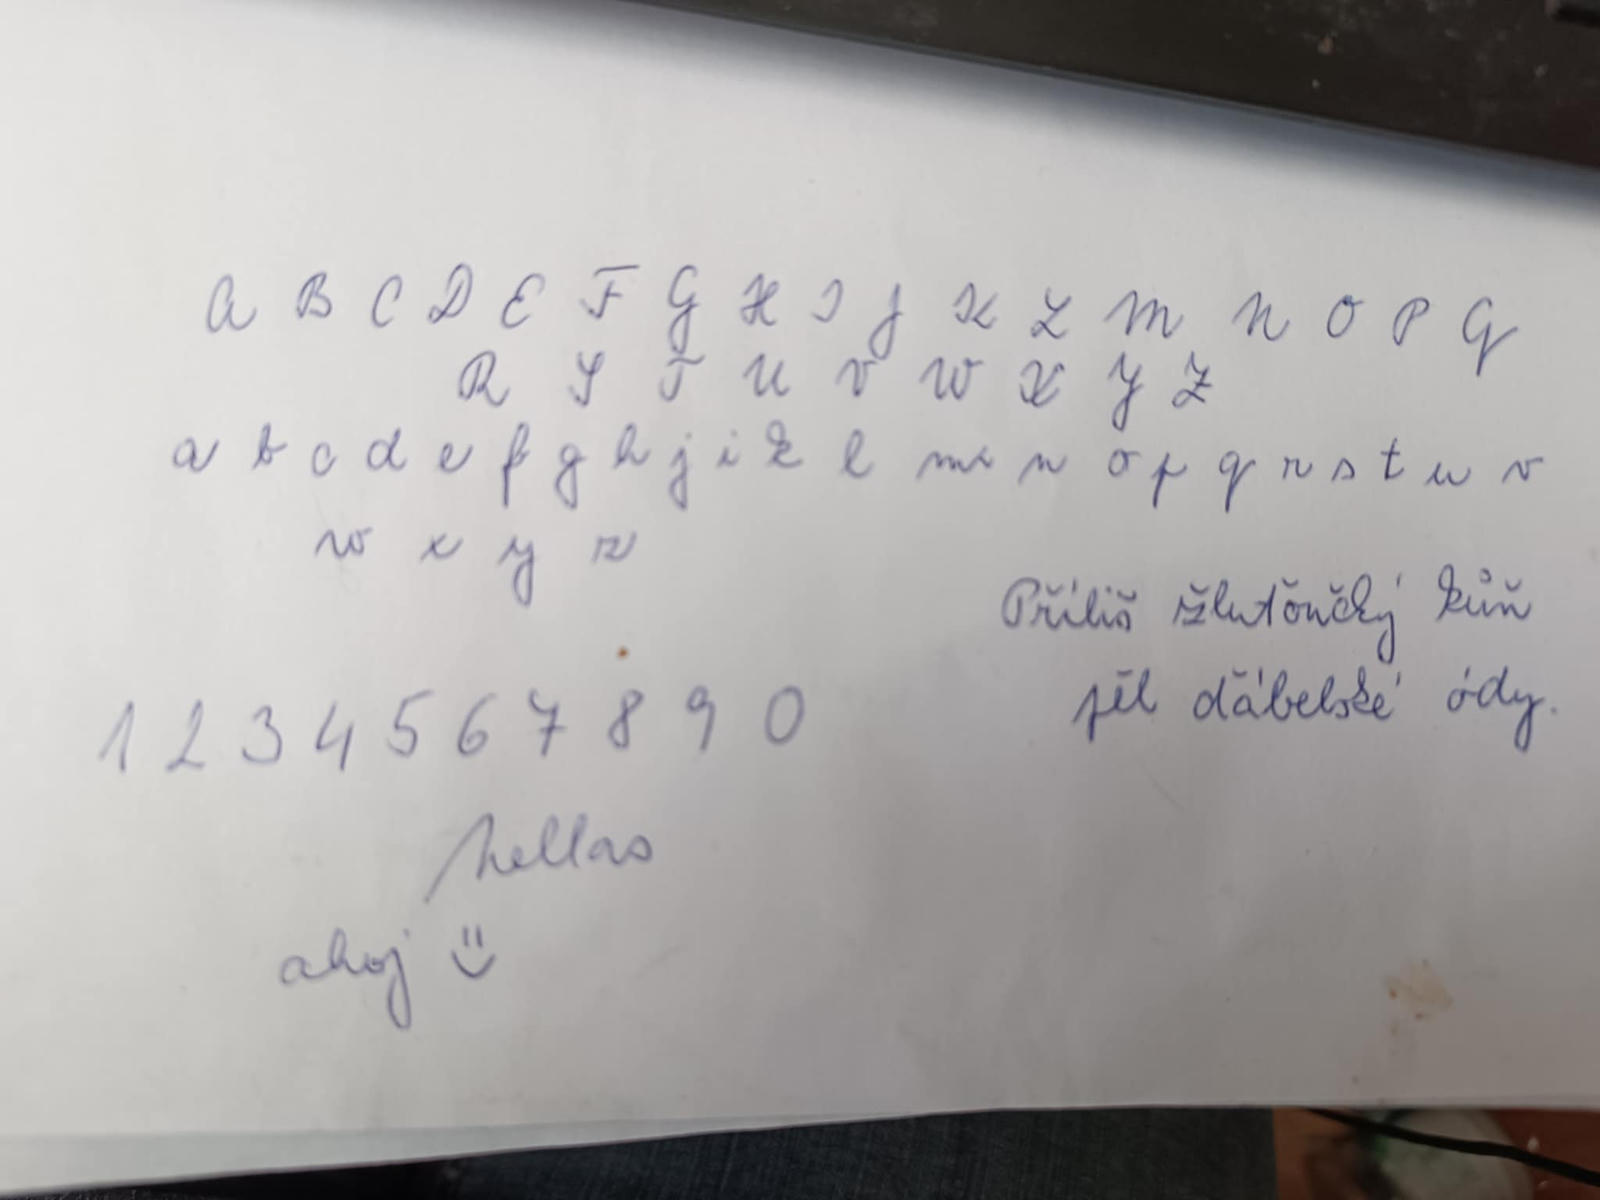 A B C D E F G H I J K L M N O P Q
R S T U V W X Y Z
a b c d e f g h j i k l m n o p q r s t u v
w x y z
Příliš žluťoučký kůň
pěl ďábelské ódy.
1 2 3 4 5 6 7 8 9 0
hellas
ahoj